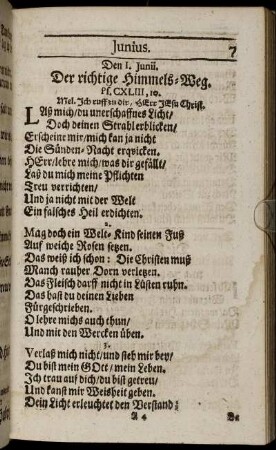 Junius. 7
Den 1. Junii.
Der richtige Himmels-Weg.
Ps. CXLIII, 10.
Mel. Ich ruff zu dir, HErr JEsu Christ.
LAß mich/du unerschaffnes Licht/
Doch deinen Strahl erblicken/
Erscheine mir/mich kan ja nicht
Die Sünden-Nacht erqvicken.
HErr/lehre mich/was dir gefällt/
Laß du mich meine Pflichten
Treu verrichten/
Und ja nicht mit der Welt
Ein falsches Heil erdichten.
2.
Mag doch ein Welt-Kind seinen Fuß
Auf weiche Rosen setzen.
Das weiß ich schon: Die Christen muß
Manch rauher Dorn verletzen.
Das Fleisch darff nicht in Lüsten ruhn.
Das hast du deinen Lieben
Fürgeschrieben.
O lehre michs auch thun/
Und mit den Wercken üben.
3.
Verlaß mich nicht/und steh mir bey/
Du bist mein GOtt/mein Leben.
Ich trau auf dich/du bist getreu/
Und kanst mir Weisheit geben.
Dein Licht erleuchtet den Verstand;
A 4 Be